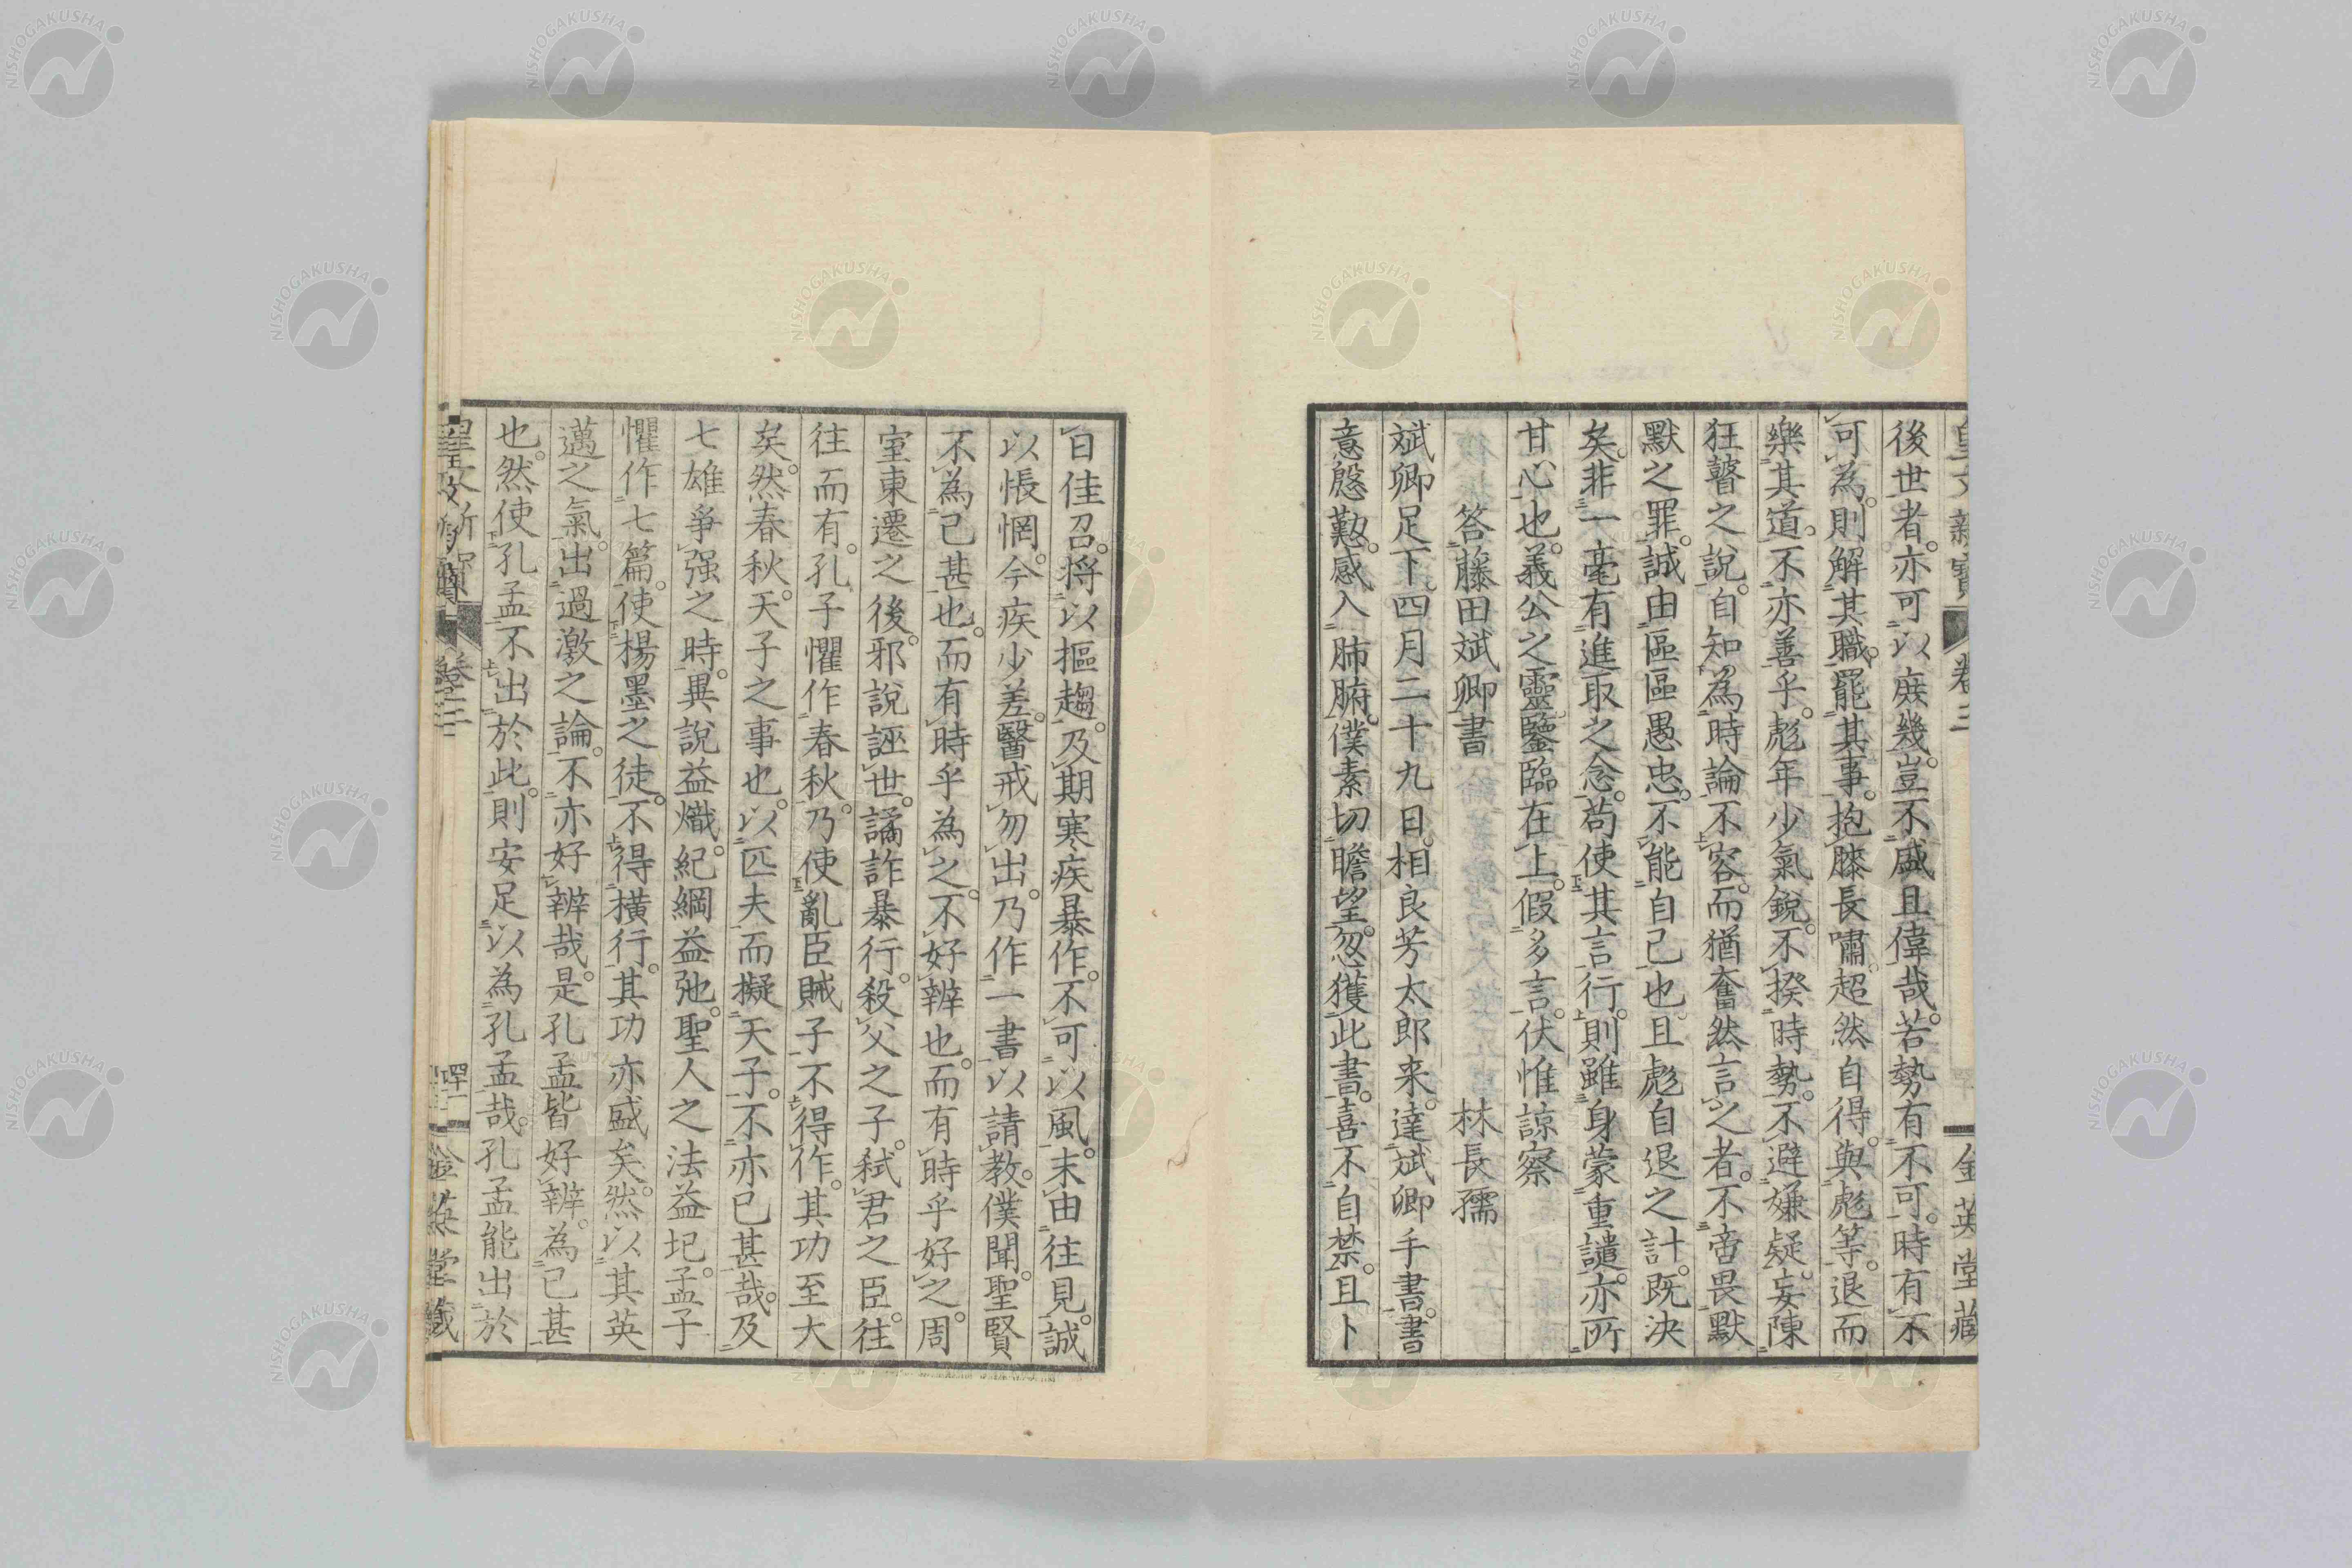 皇文新寶 卷三 金英堂藏
後世者。亦可以庶幾。豈不盛且偉哉。若勢有不可。時有不
可為。則解其職。罷其事。抱膝長嘯。超然自得。與彪等。退而
樂其道。不亦善乎。彪年少氣銳。不揆時勢。不避嫌疑。妄陳
狂瞽之說。自知為時論不容。而猶奮然言之者。不啻畏默
默之罪。誠由區區愚忠。不能自己也。且彪自退之計。既決
矣。非一毫有進取之念。苟使其言行。則雖身蒙重譴。亦所
甘心也。義公之靈鑒臨在上。假多言。伏惟諒察
答藤田斌卿書 林長孺
斌卿足下。四月二十九日。相良芳太郎来。達斌卿手書。書
意慇懃。感入肺腑。僕素切瞻望。忽獲此書。喜不自禁。且卜
日佳召。将以摳趨。及期寒疾暴作。不可以風。末由往見。誠
以悵惘。今疾少差。醫戒勿出。乃作一書以請教。僕聞聖賢
不為已甚也。而有時乎為之。不好辨也。而有時乎好之。周
室東遷之後。邪說誣世。譎詐暴行。殺父之子。弒君之臣。往
往而有。孔子懼作春秋。乃使亂臣賊子不得作。其功至大
矣。然春秋。天子之事也。以匹夫而擬天子。不亦已甚哉。及
七雄爭强之時。異說益熾。紀綱益弛。聖人之法益圮。孟子
懼作七篇。使楊墨之徒。不得橫行。其功亦盛矣。然以其英
邁之氣。出過激之論。不亦好辨哉。是孔孟皆好辨。為已甚
也。然使孔孟不出於此。則安足以為孔孟哉。孔孟能出於
卷三